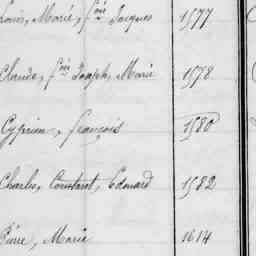 Louis, Marie, fois Jacques 1577
Claude, fois Joseph, Marie 1578
Cyprien, françois 1580
Charles, Constant, Edouard 1582
Pierre, Marie 1614